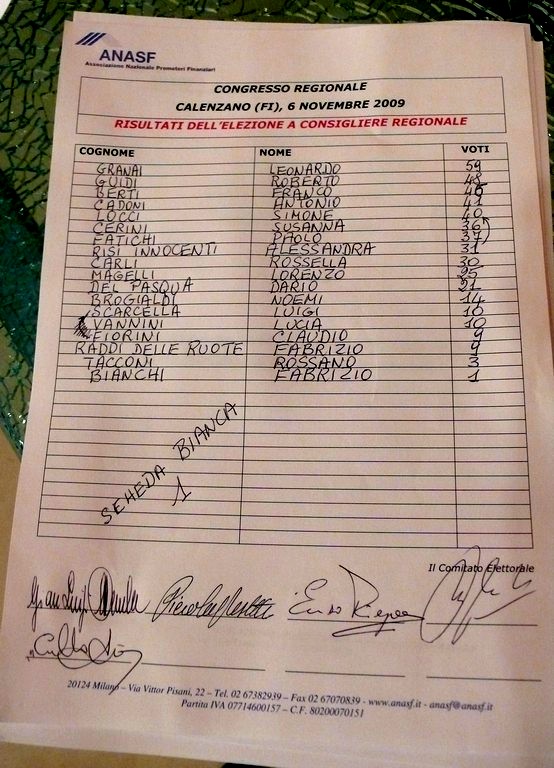 ANASF
Associazione Nazionale Promotori Finanziari
CONGRESSO REGIONALE
CALENZANO (FI), 6 NOVEMBRE 2009
RISULTATI DELL'ELEZIONE A CONSIGLIERE REGIONALE
COGNOME NOME VOTI
GRANAI LEONARDO 59
GUIDI ROBERTO 48
BERTI FRANCO
CADONI ANTONIO 41
LOCCI SIMONE 40
CERINI SUSANNA 36
FATICHI PAOLO 37
RISI INNOCENTI ALESSANDRA 31
CARLI ROSSELLA 30
MAGELLI LORENZO 25
DEL PASQUA DARIO 21
BROGIALDI NOEMI 14
SCARCELLA LUIGI 10
VANNINI LUCIA 10
FIORINI CLAUDIO 9
RADDI DELLE RUOTE FABRIZIO 9
TACCONI ROSSANO 3
BIANCHI FABRIZIO 1
SEHEDA BIANCA
1
Il Comitato Elettorale
20124 Milano – Via Vittor Pisani, 22 – Tel. 02 67382939 – Fax 02 67070839 - www.anasf.it - anasf@anasf.it
Partita IVA 07714600157 – C.F. 80200070151